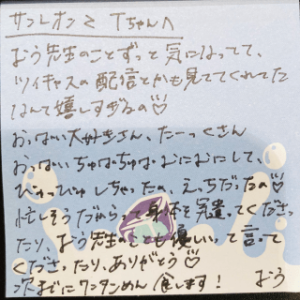 サンレオンで Tちゃんへ
おう先生のことずっと気になってて、
ツイキャスの配信とかも見ててくれてた
なんて嬉しすぎるの♡
おっぱい大好きさん、たーっくさん
おっぱいちゅぱちゅぱ、むにむにして、
ぴゅっぴゅしちゃったの、えっちだったの♡
忙しそうだからって身体を気遣ってくださっ
たり、おう先生のことも優しいって言って
くださったり、ありがとう♡
たまにワンタンめん食します! おう